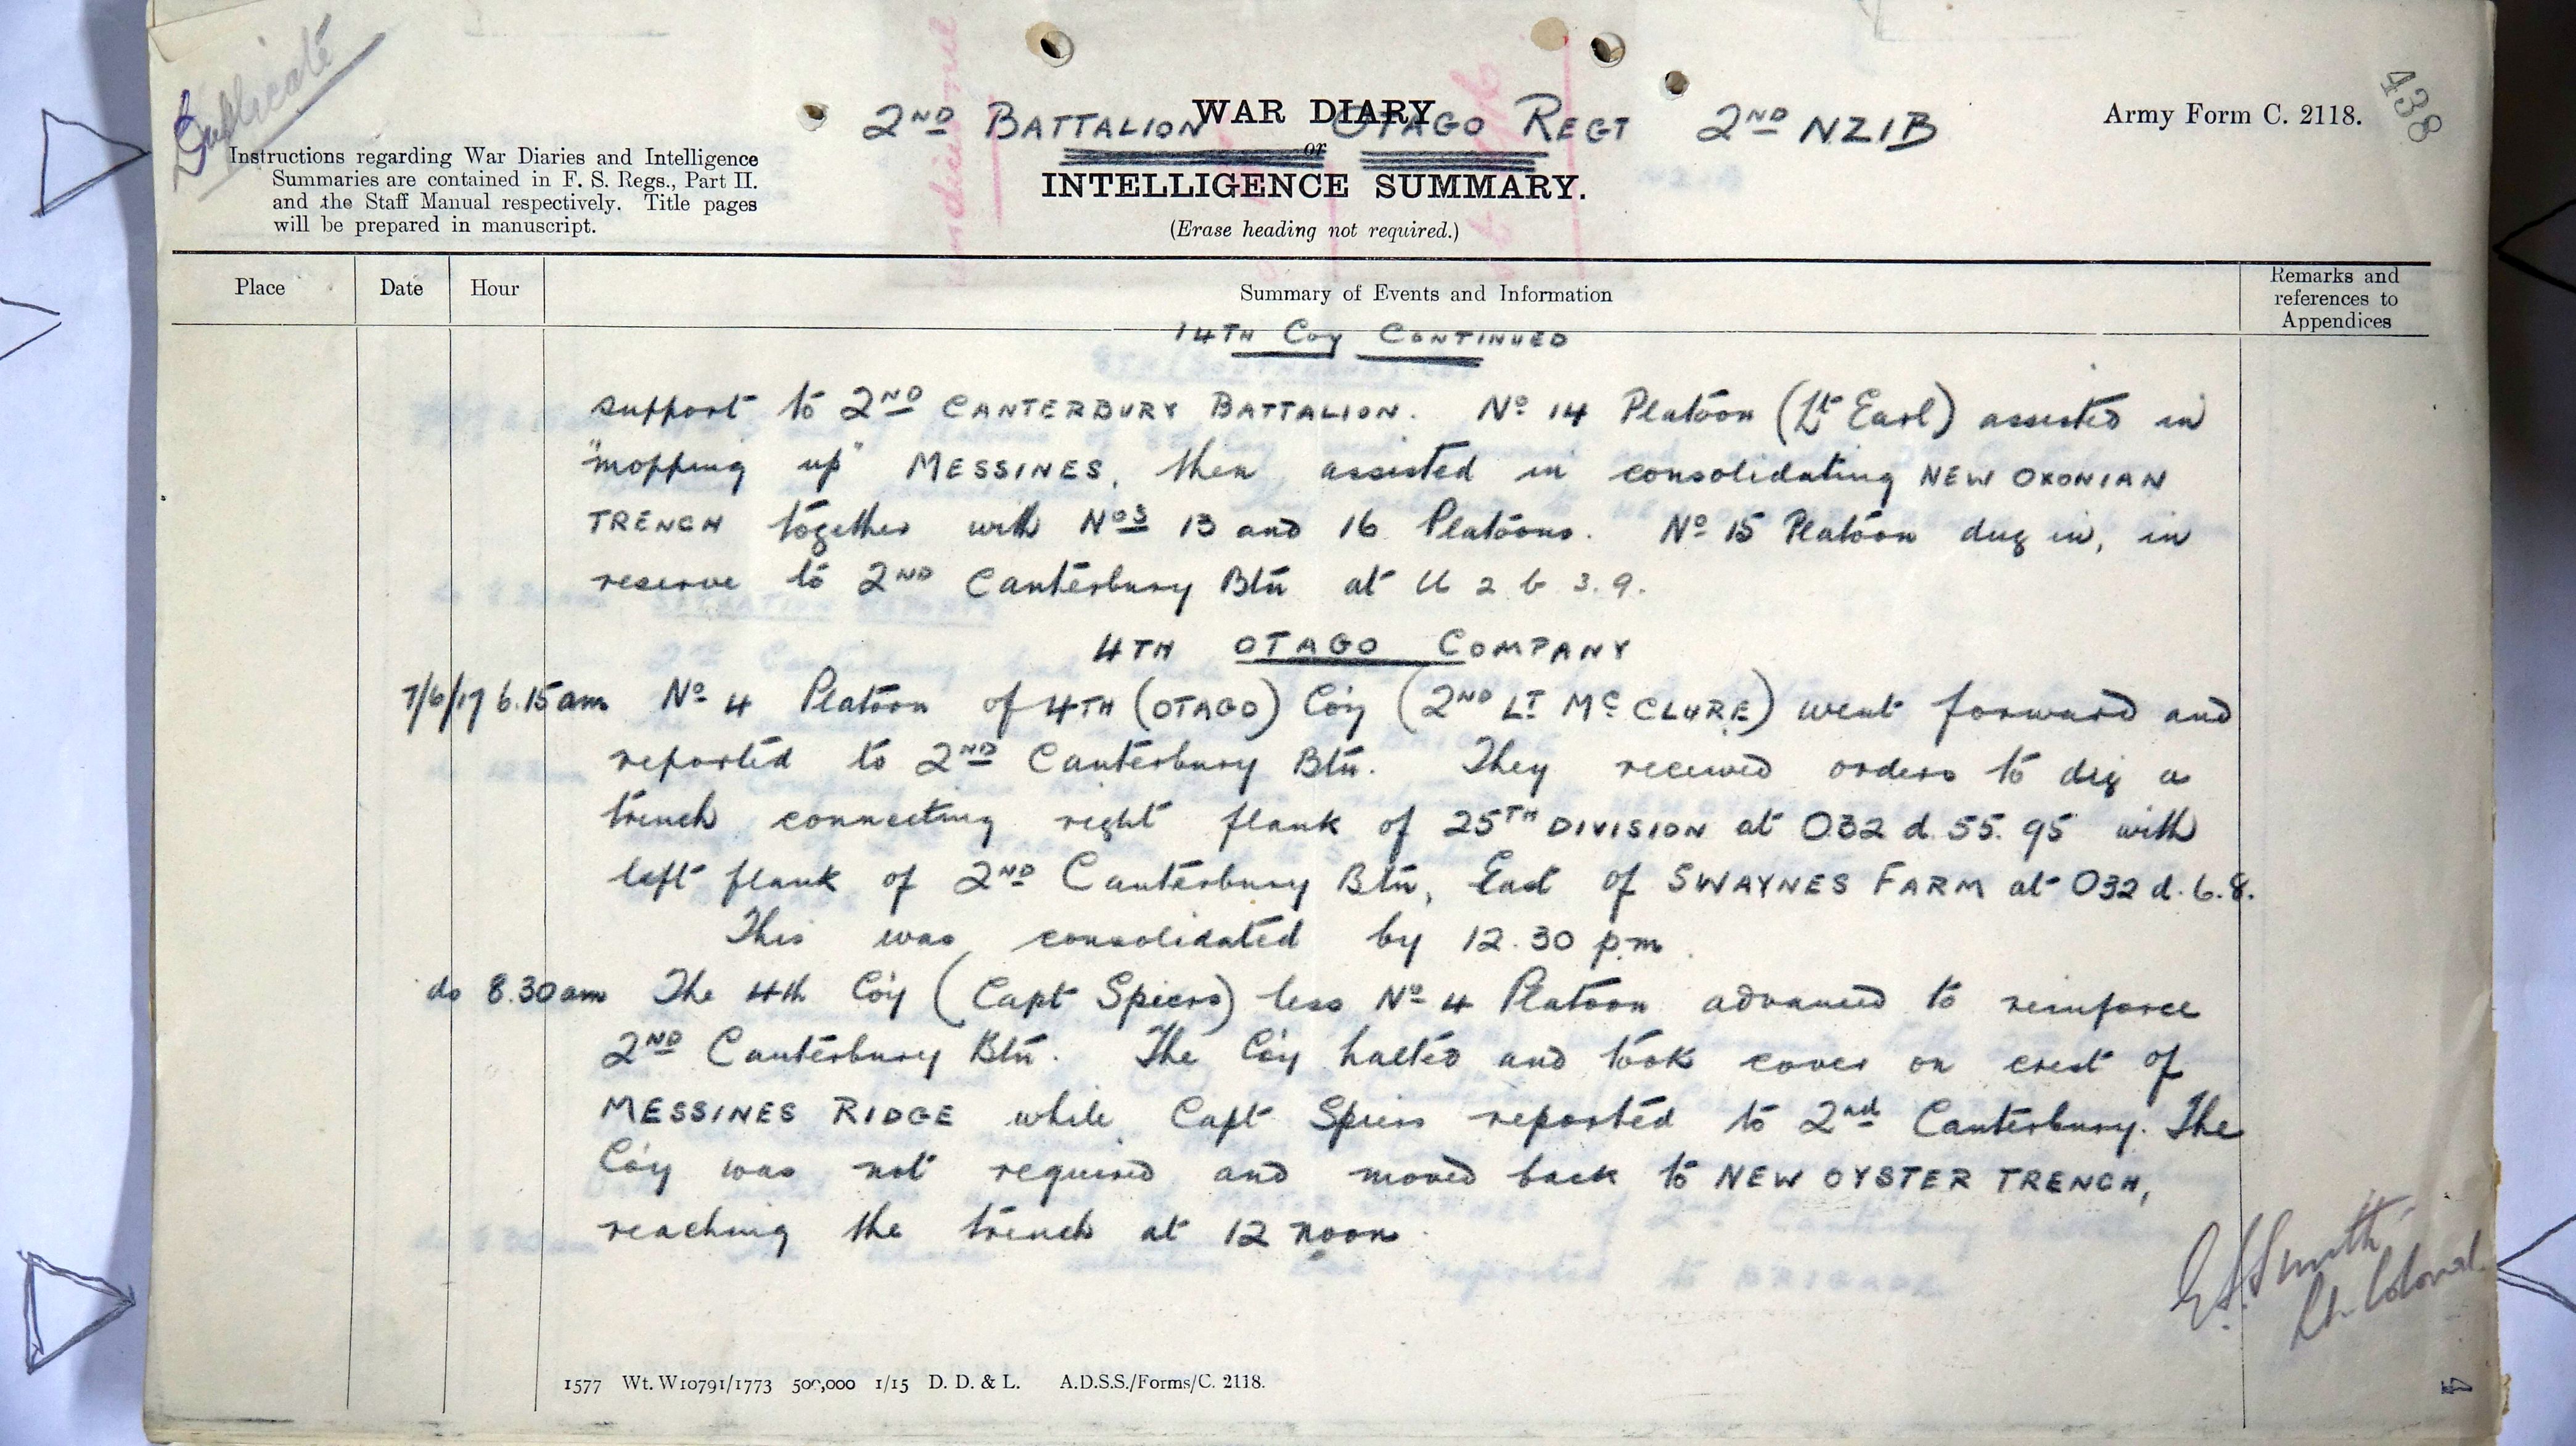 Duplicate
438
2ND BATTALION OTAGO REGT 2ND NZIB
WAR DIARY
or
INTELLIGENCE SUMMARY.
(Erase heading not required.)
Army Form C. 2118.
Instructions regarding War Diaries and Intelligence
Summaries are contained in F. S. Regs., Part II.
and the Staff Manual respectively. Title pages
will be prepared in manuscript.
Place Date Hour Summary of Events and Information Remarks and
references to
Appendices
14TH Coy CONTINUED
support to 2ND CANTERBURY BATTALION. No 14 Platoon (Lt Earl) assisted in
"mopping up" MESSINES, then assisted in consolidating NEW OXONIAN
TRENCH together with Nos 13 and 16 Platoons. No 15 Platoon dug in, in
reserve to 2ND Canterbury Btn at U 2 b 3.9.
4TH OTAGO COMPANY
7/6/17 6.15am No 4 Platoon of 4TH (OTAGO) Coy (2ND LT McCLURE) went forward and
reported to 2ND Canterbury Btn. They received orders to dig a
trench connecting right flank of 25TH DIVISION at O32 d. 55. 95 with
left flank of 2ND Canterbury Btn, East of SWAYNES FARM at O32 d. 6.8.
This was consolidated by 12.30 p.m.
do 8.30am The 4th Coy (Capt Spiers) less No 4 Platoon advanced to reinforce
2ND Canterbury Btn. The Coy halted and took cover on crest of
MESSINES RIDGE while Capt Spiers reported to 2nd Canterbury. The
Coy was not required and moved back to NEW OYSTER TRENCH,
reaching the trench at 12 noon.
G.S. Smith
Lt. Colonel.
1577 Wt. W10791/1773 500,000 1/15 D. D. & L. A.D.S.S./Forms/C. 2118.